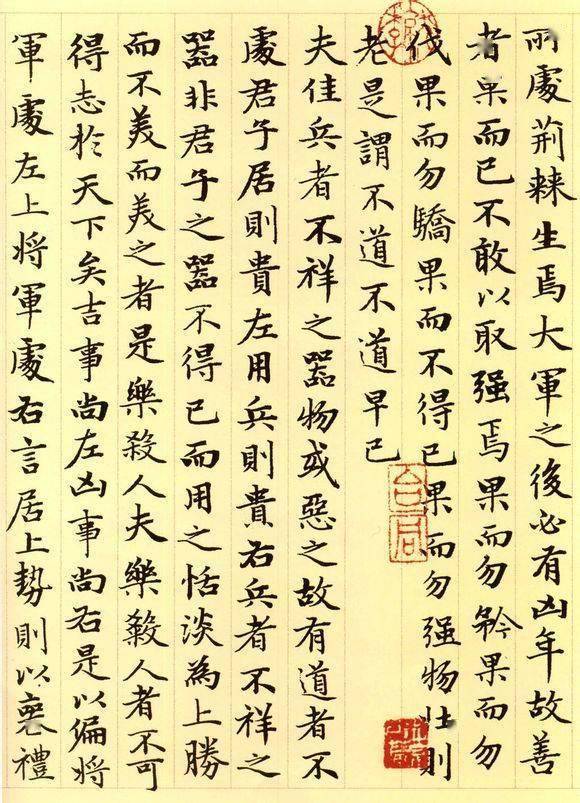 所處荊棘生焉大軍之後必有凶年故善
者果而已不敢以取强焉果而勿矜果而勿
伐果而勿驕果而不得已果而勿强物壯則
老是謂不道不道早已
夫佳兵者不祥之器物或惡之故有道者不
處君子居則貴左用兵則貴右兵者不祥之
器非君子之器不得已而用之恬淡為上勝
而不美而美之者是樂殺人夫樂殺人者不可
得志於天下矣吉事尚左凶事尚右是以偏將
軍處左上將軍處右言居上勢則以喪禮